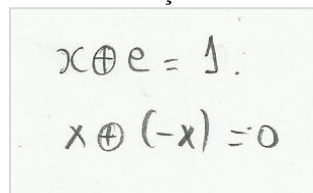 x⊕e = 1.
x⊕(-x) = 0